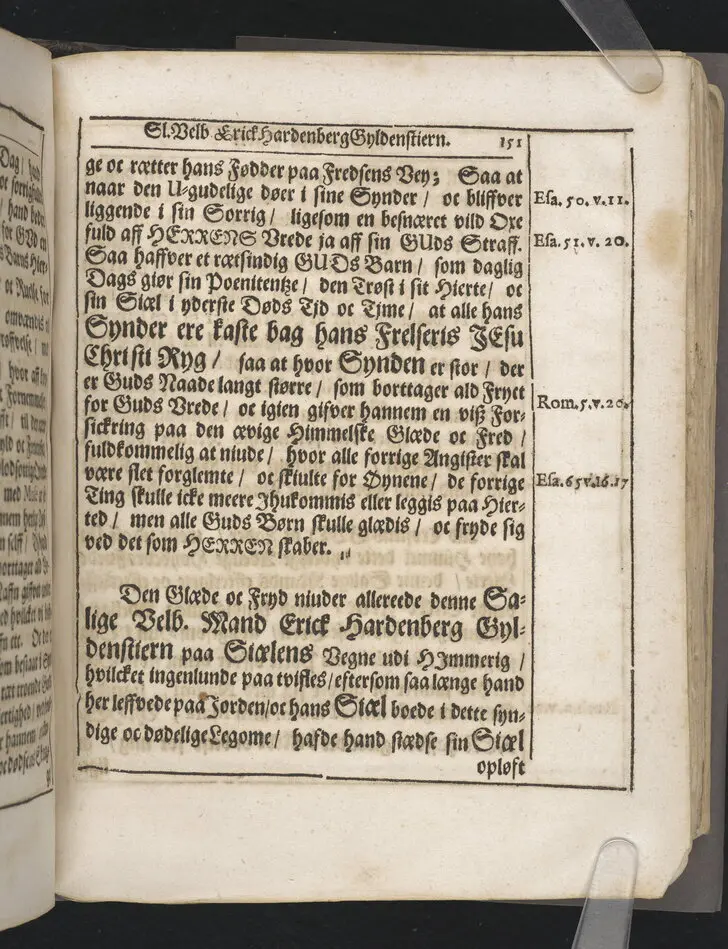 Sl. Velb Erick Hardenberg Gyldenstiern. 151
ge oc rætter hans Fødder paa Fredsens Vey; Saa at
naar den U-gudelige døer i sine Synder / oc bliffver
liggende i sin Sorrig / ligesom en besnæret vild Oxe
fuld aff HERRENS Vrede ja aff sin GUds Straff.
Saa haffver et rætsindig GUDs Barn / som daglig
Dags giør sin Poenitentze / den Trøst i sit Hierte / oc
sin Siæl i yderste Døds Tjd oc Tjme / at alle hans
Synder ere kaste bag hans Frelseris JEsu
Christi Ryg / saa at hvor Synden er stor / der
er Guds Naade langt større / som borttager ald Fryct
for Guds Vrede / oc igien gifver hannem en viß For-
sickring paa den ævige Himmelske Glæde oc Fred /
fuldkommelig at niude / hvor alle forrige Angister skal
være slet forglemte / oc skiulte for Øynene / de forrige
Ting skulle icke meere Jhukommis eller leggis paa Hier-
ted / men alle Guds Børn skulle glædis / oc fryde sig
ved det som HERREN skaber.
Esa. 50. v. 11.
Esa. 51. v. 20.
Rom. 5. v. 20.
Esa. 65 v. 16. 17
Den Glæde oc Fryd niuder allereede denne Sa-
lige Velb. Mand Erick Hardenberg Gyl-
denstiern paa Siælens Vegne udi HJmmerig /
hvilcket ingenlunde paa tvifles / eftersom saa længe hand
her leffvede paa Jorden / oc hans Siæl boede i dette syn-
dige oc dødelige Legome / hafde hand stædse sin Siæl
opløft